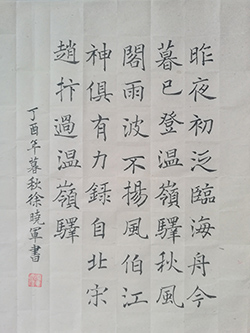 昨夜初泛臨海舟今
暮已登温嶺驛秋風
閣雨波不揚風伯江
神俱有力錄自北宋
趙抃過温嶺驛
丁酉年暮秋徐曉軍書